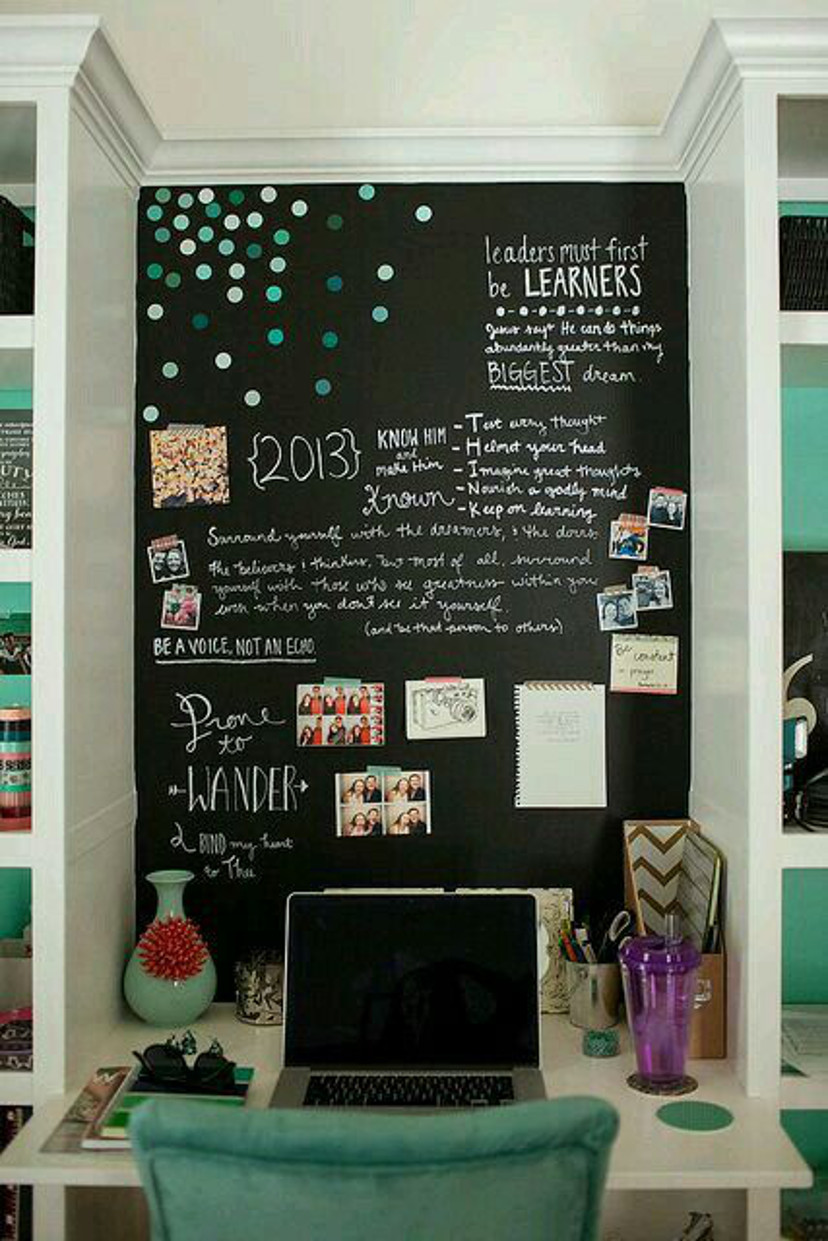 leaders must first
be LEARNERS
Jesus says He can do things
abundantly greater than my
BIGGEST dream.
{2013}
KNOW HIM
and
make Him
Known
- Test every thought
- Helmet your head
- Imagine great thoughts
- Nourish a godly mind
- Keep on learning
Surround yourself with the dreamers, & the doers,
the believers & thinkers, but most of all, surround
yourself with those who see greatness within you
even when you don't see it yourself.
(and be that person to others)
BE A VOICE, NOT AN ECHO.
Be constant
- prayer
Prone
to
WANDER
BIND my heart
to Thee